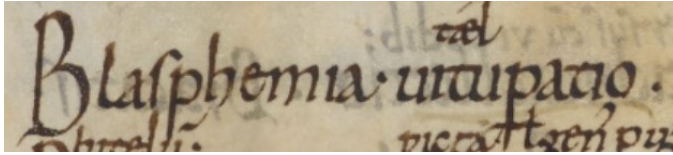 tæl
Blasphemia · uitupatio .